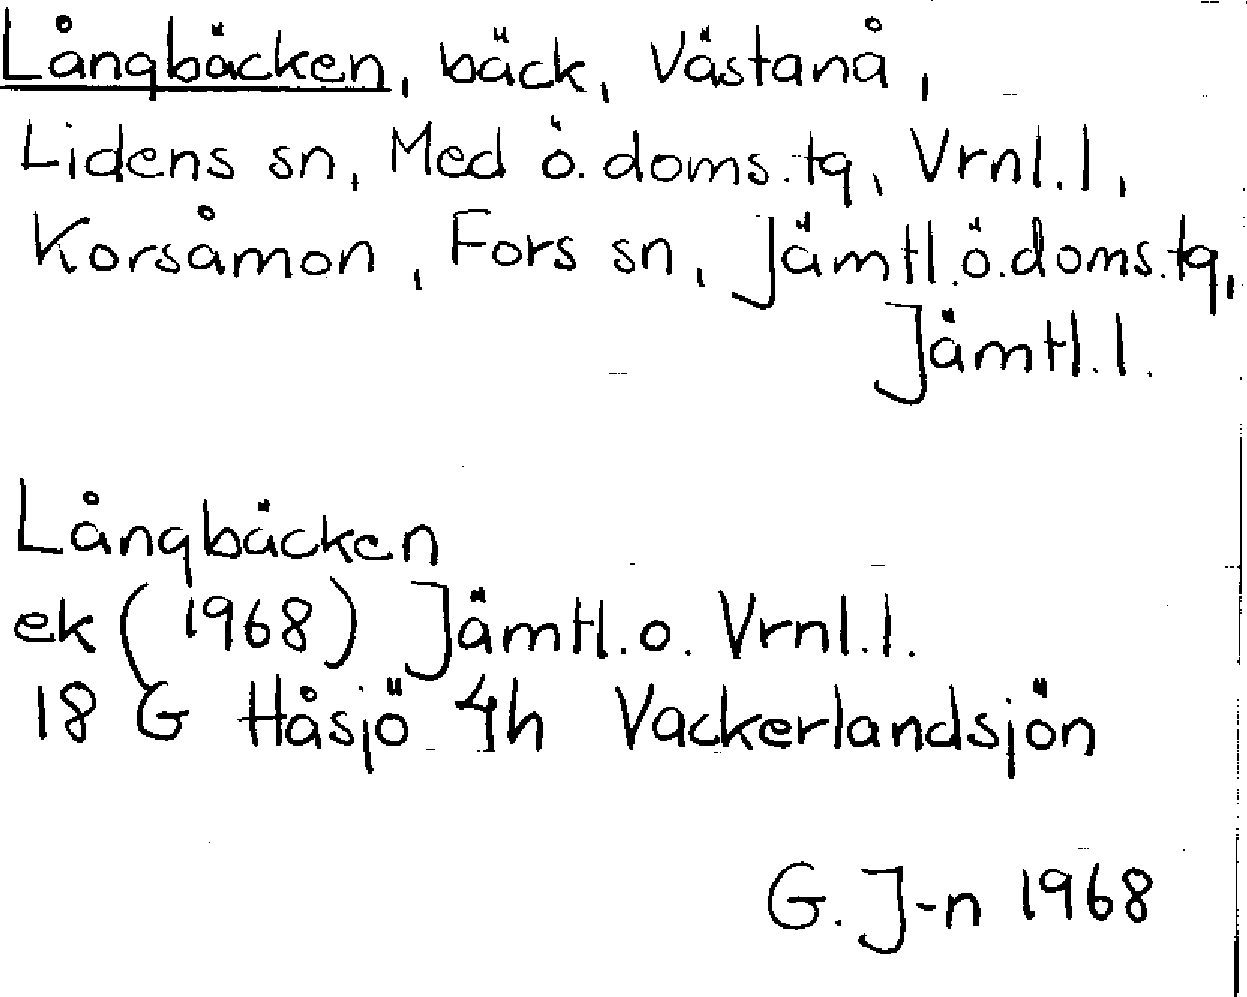 Långbäcken, bäck, Västanå,
Lidens sn, Med ö.doms.tg, Vrnl.l,
Korsåmon, Fors sn, Jämtl.ö.doms.tg,
Jämtl.l.
Långbäcken
ek (1968) Jämtl.o. Vrnl.l.
18 G Håsjö 4h Vackerlandsjön
G. J-n 1968